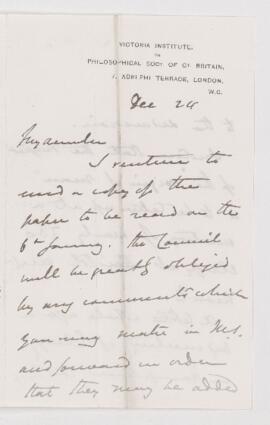 VICTORIA INSTITUTE,
OR
PHILOSOPHICAL SOCY OF GT BRITAIN,
7, ADELPHI TERRACE, LONDON,
W.C.
Dec 24
My dear Sir
I venture to
send a copy of the
paper to be read on the
6th January. The Council
will be greatly obliged
by any comments which
you may make in M.S.
and forward in order
that they may be added